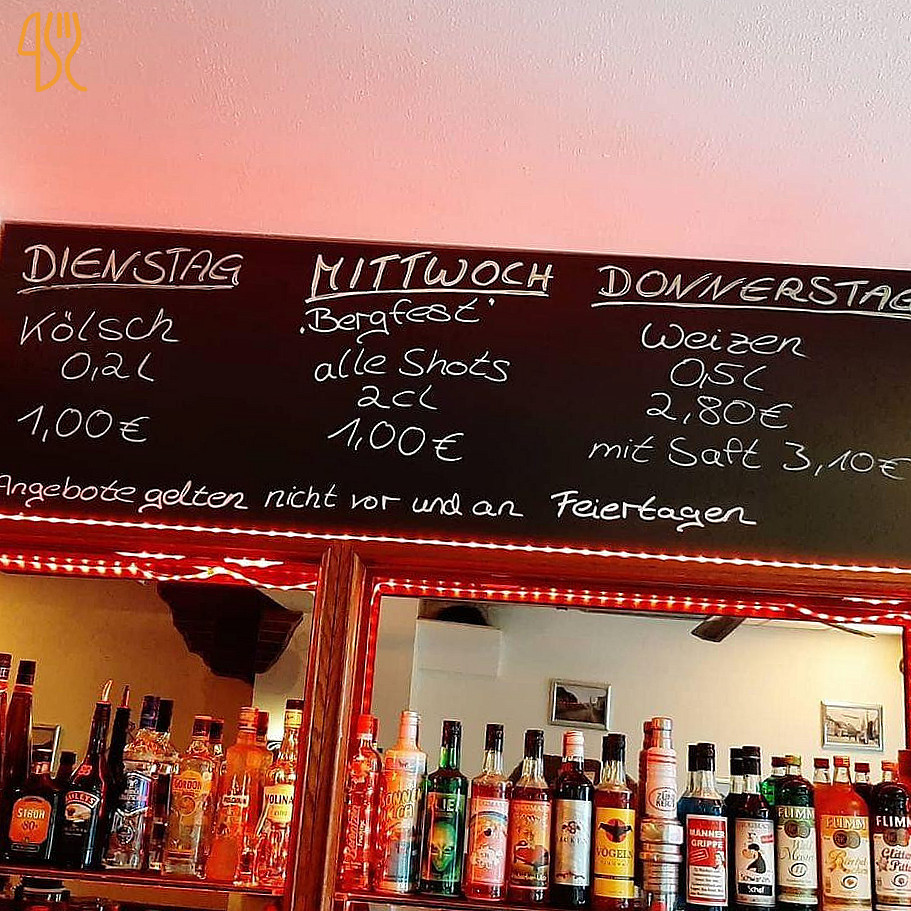 DIENSTAG
Kölsch
0,2l
1,00€
MITTWOCH
"Bergfest"
alle Shots
2cl
1,00€
DONNERSTAG
Weizen
0,5l
2,80€
mit Saft 3,10€
Angebote gelten nicht vor und an Feiertagen
GORDON
MOLINA
VÖGELN
MÄNNER
GRIPPE
Schaf
FLIMM
FLIMM
FLIMM